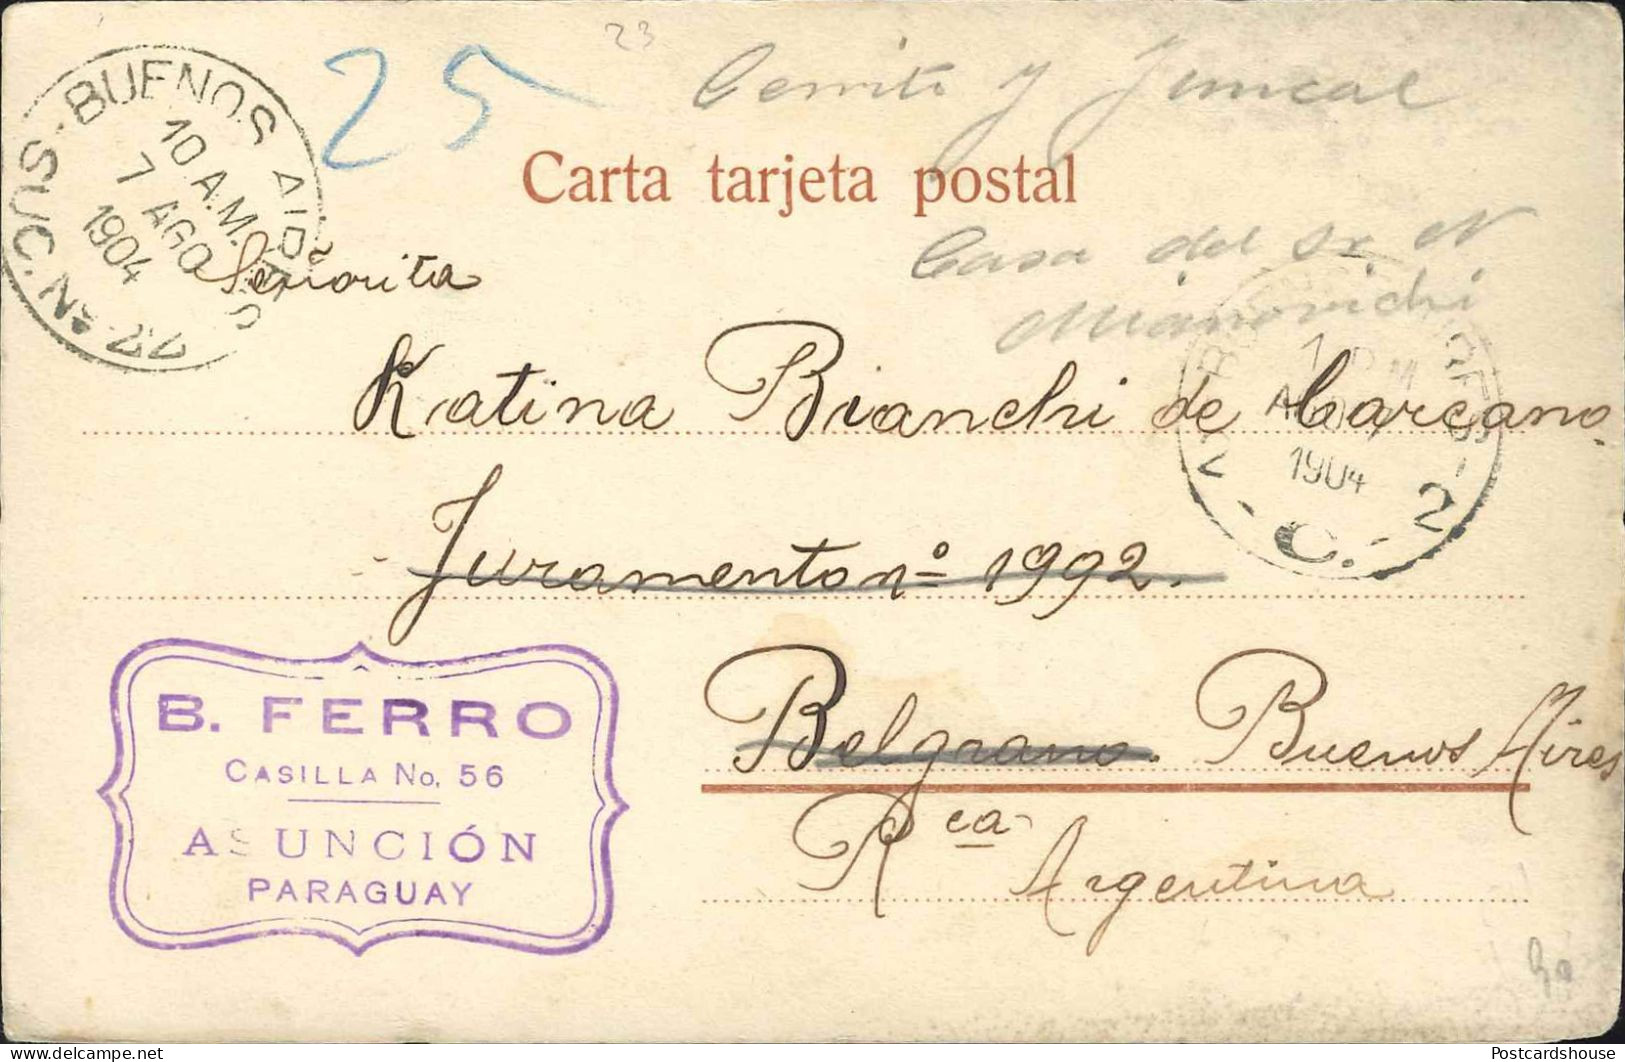 25
23
Cerrito y Juncal
Carta tarjeta postal
BUENOS AIRES
SUC. No 22
10 A.M.
7 AGO
1904
Casa del Sr. N
Mianovichi
Señorita
Katina Bianchi de Carcano.
1904
C. 2
Juramento nº 1992.
Belgrano. Buenos Aires
Rca Argentina
B. FERRO
CASILLA No. 56
ASUNCIÓN
PARAGUAY
delcampe.net
Postcardshouse